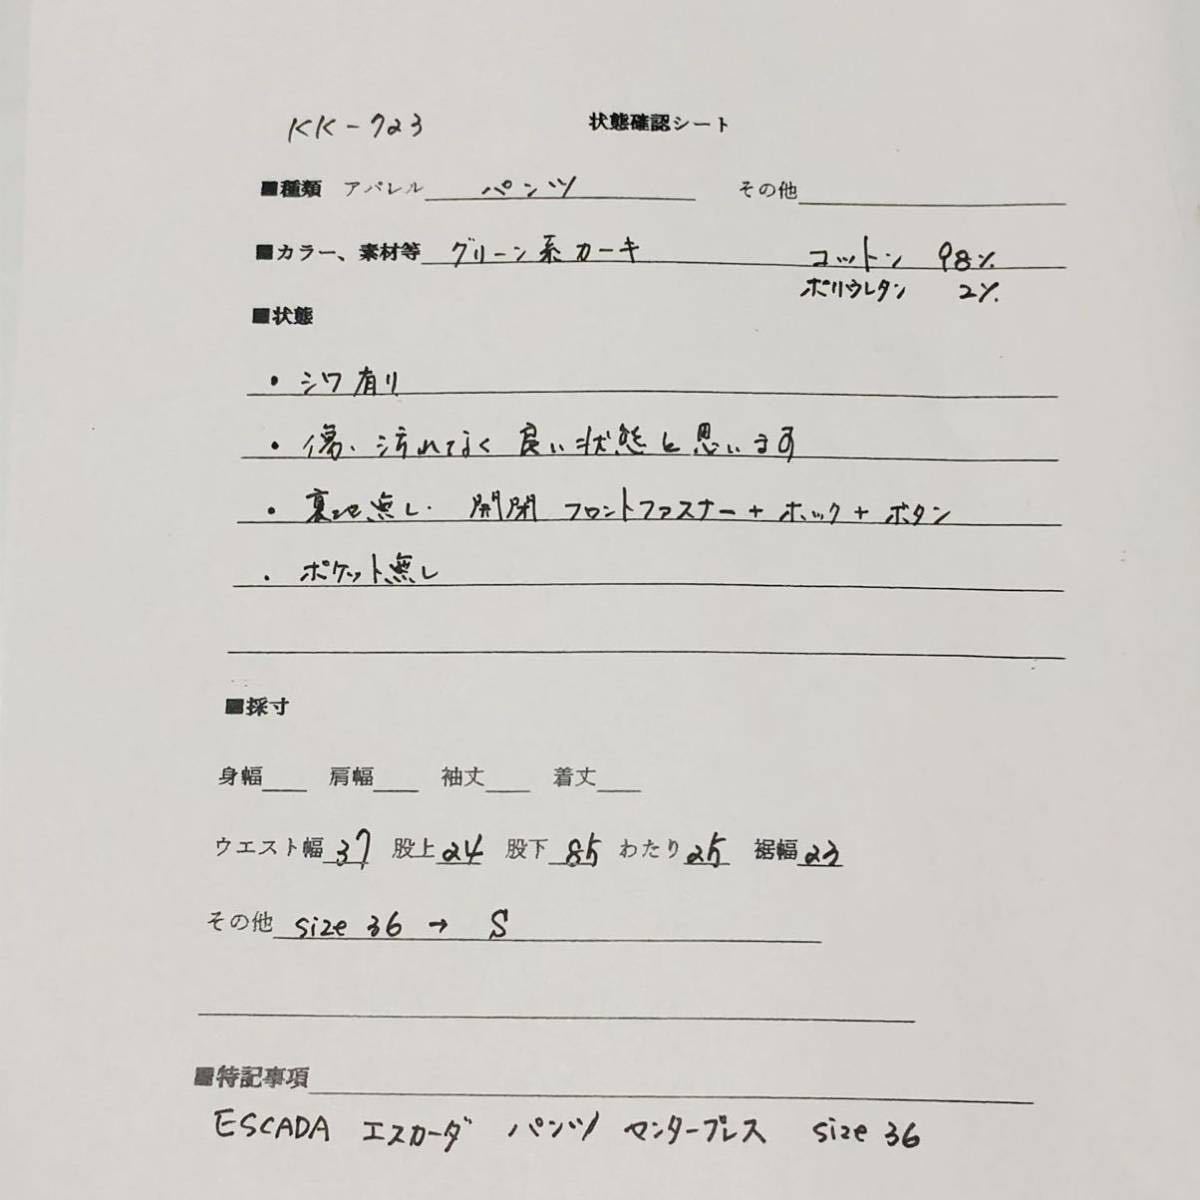 KK-723 状態確認シート
■種類 アパレル パンツ その他
■カラー、素材等 グリーン系カーキ コットン 98%
ポリウレタン 2%
■状態
・シワ有り
・傷、汚れなく良い状態と思います
・裏地無し. 開閉 フロントファスナー+ホック+ボタン
・ポケット無し
■採寸
身幅 肩幅 袖丈 着丈
ウエスト幅 37 股上 24 股下 85 わたり 25 裾幅 23
その他 size 36 → S
■特記事項
ESCADA エスカーダ パンツ センタープレス size 36